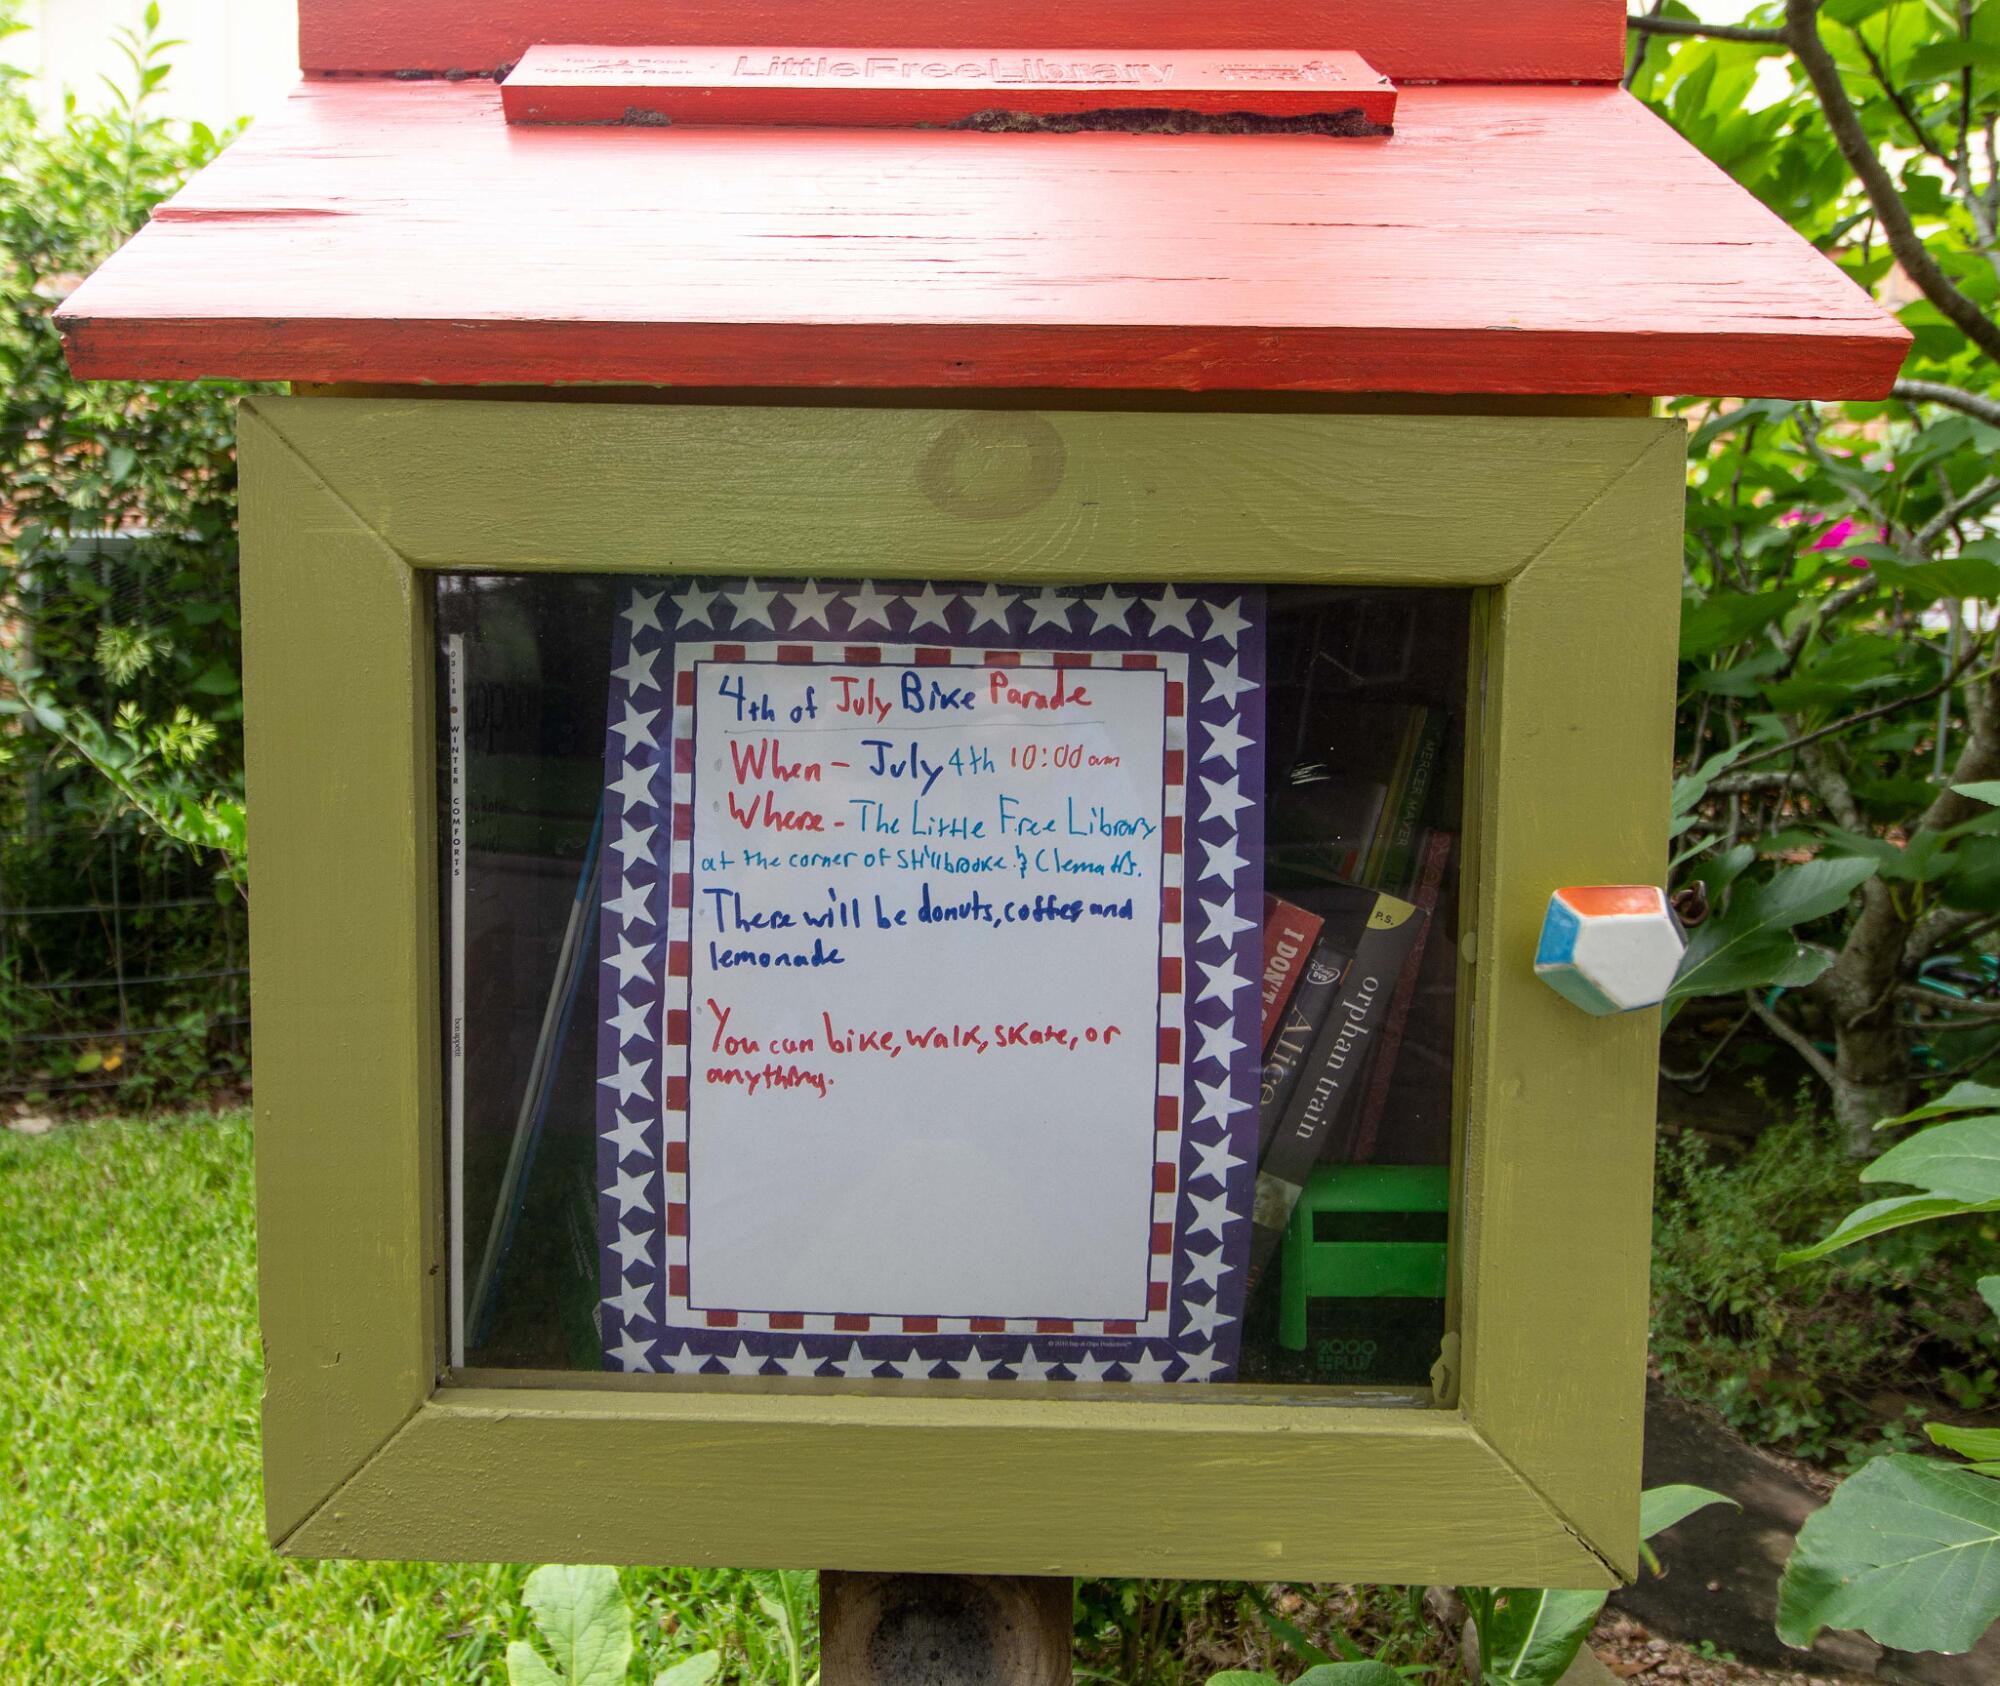 Take a Book
Return a Book
LittleFreeLibrary
4th of July Bike Parade
When - July 4th 10:00 am
Where - The Little Free Library
at the corner of Stillbrooke & Clematis.
There will be donuts, coffee and
lemonade
You can bike, walk, skate, or
anything.
03-18 • WINTER COMFORTS
bon appétit
MERCER MAYER
I DON'T
Alice
P.S.
orphan train
2000
PLUS